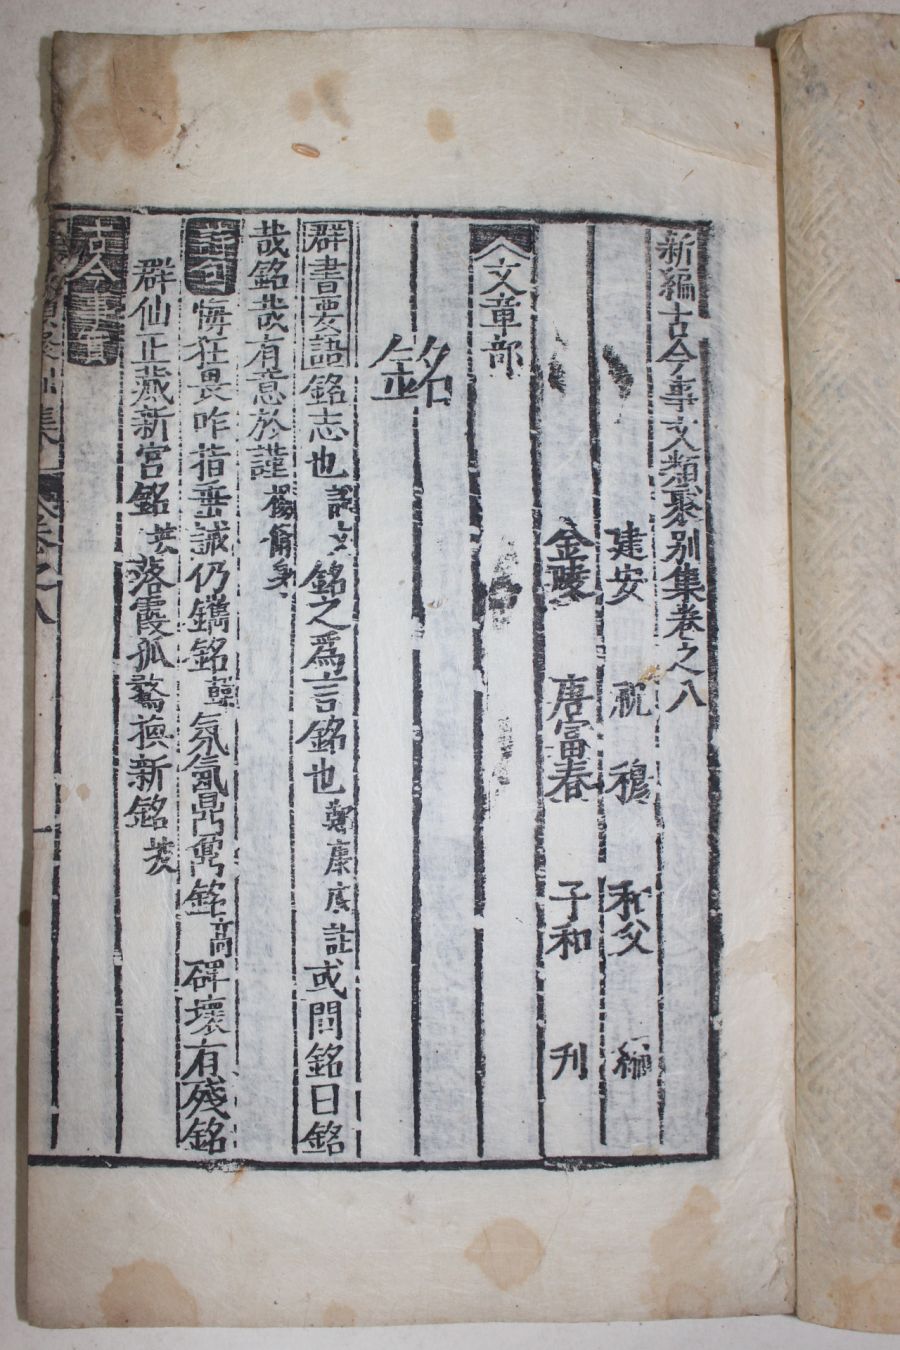 新編古今事文類聚別集卷之八
建安 祝 穆 和父 編
金陵 唐富春 子和 刊
文章部
銘
群書要語銘志也說文銘之爲言銘也鄭康成註或問銘曰銘
哉銘哉有意於謹揚脩身
詩句悔狂畏咋指垂誡仍鐫銘韓氛氳鼎㝯銘高碑壞有殘銘
群仙正藏新宮銘坡落霞孤鶩換新銘坡
古今事實
集 卷之八 一